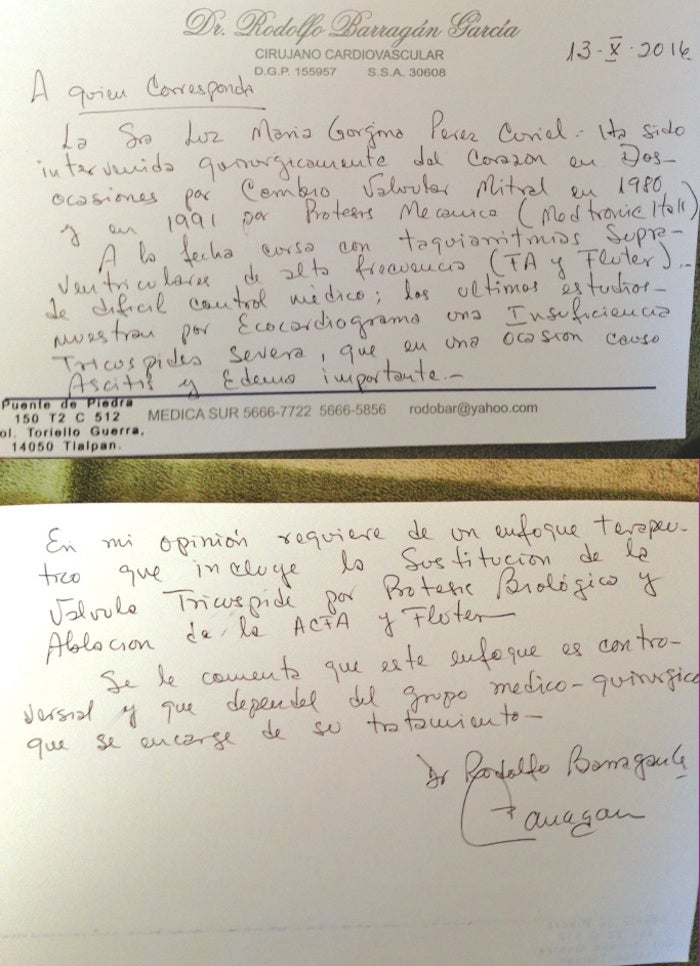 Dr. Rodolfo Barragán García
CIRUJANO CARDIOVASCULAR
D.G.P. 155957 S.S.A. 30608
13-X-2016
A quien Corresponda
La Sra Luz Maria Gorgina Perez Curiel.- Ha sido
intervenida quirurgicamente del Corazon en Dos-
ocasiones por Cambio Valvular Mitral en 1980
y en 1991 por Protesis Mecanica (Medtronic Hall)
A la fecha cursa con taquiarritmias Supra-
ventriculares de alta frecuencia (FA y Fluter)..
de dificil control medico; los ultimos estudios-
muestran por Ecocardiograma una Insuficiencia
Tricuspidea Severa, que en una ocasion causo
Ascitis y Edema importante.-
Puente de Piedra
150 T2 C 512
ol. Toriello Guerra,
14050 Tlalpan.
MEDICA SUR 5666-7722 5666-5856 rodobar@yahoo.com
En mi opinión requiere de un enfoque terapeu-
tico que incluye la Sustitucion de la
Valvula Tricuspide por Protesis Biológica y
Ablacion de la ACFA y Fluter-
Se le comenta que este enfoque es contro-
versial y que depende del grupo medico-quirurgico
que se encarge de su tratamiento-
Dr Rodolfo Barragan G